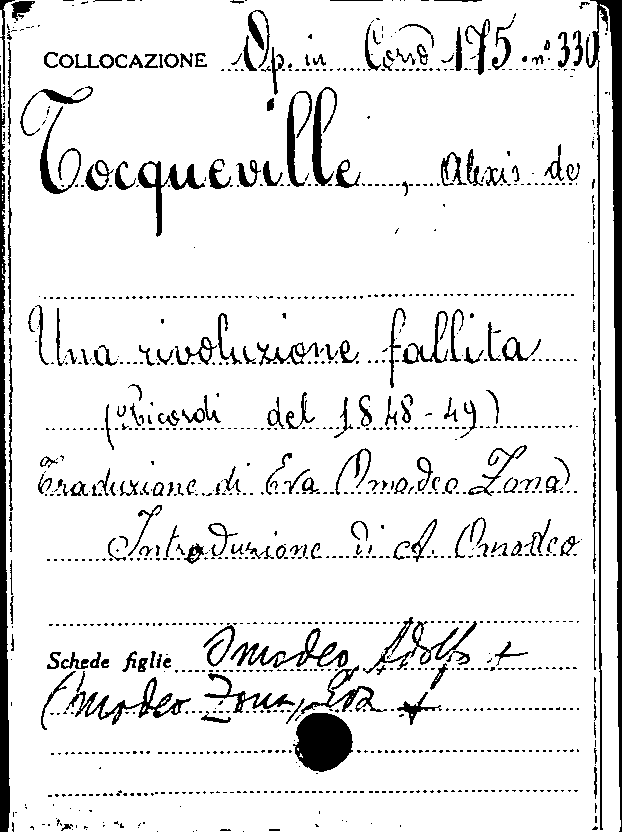 COLLOCAZIONE Op. in Corso 175. n° 330
Tocqueville, Alexis de
Una rivoluzione fallita
(Ricordi del 1848-49)
Traduzione di Eva Omodeo Zona
Introduzione di A. Omodeo
Schede figlie Omodeo, Adolfo +
Omodeo Zona, Eva +